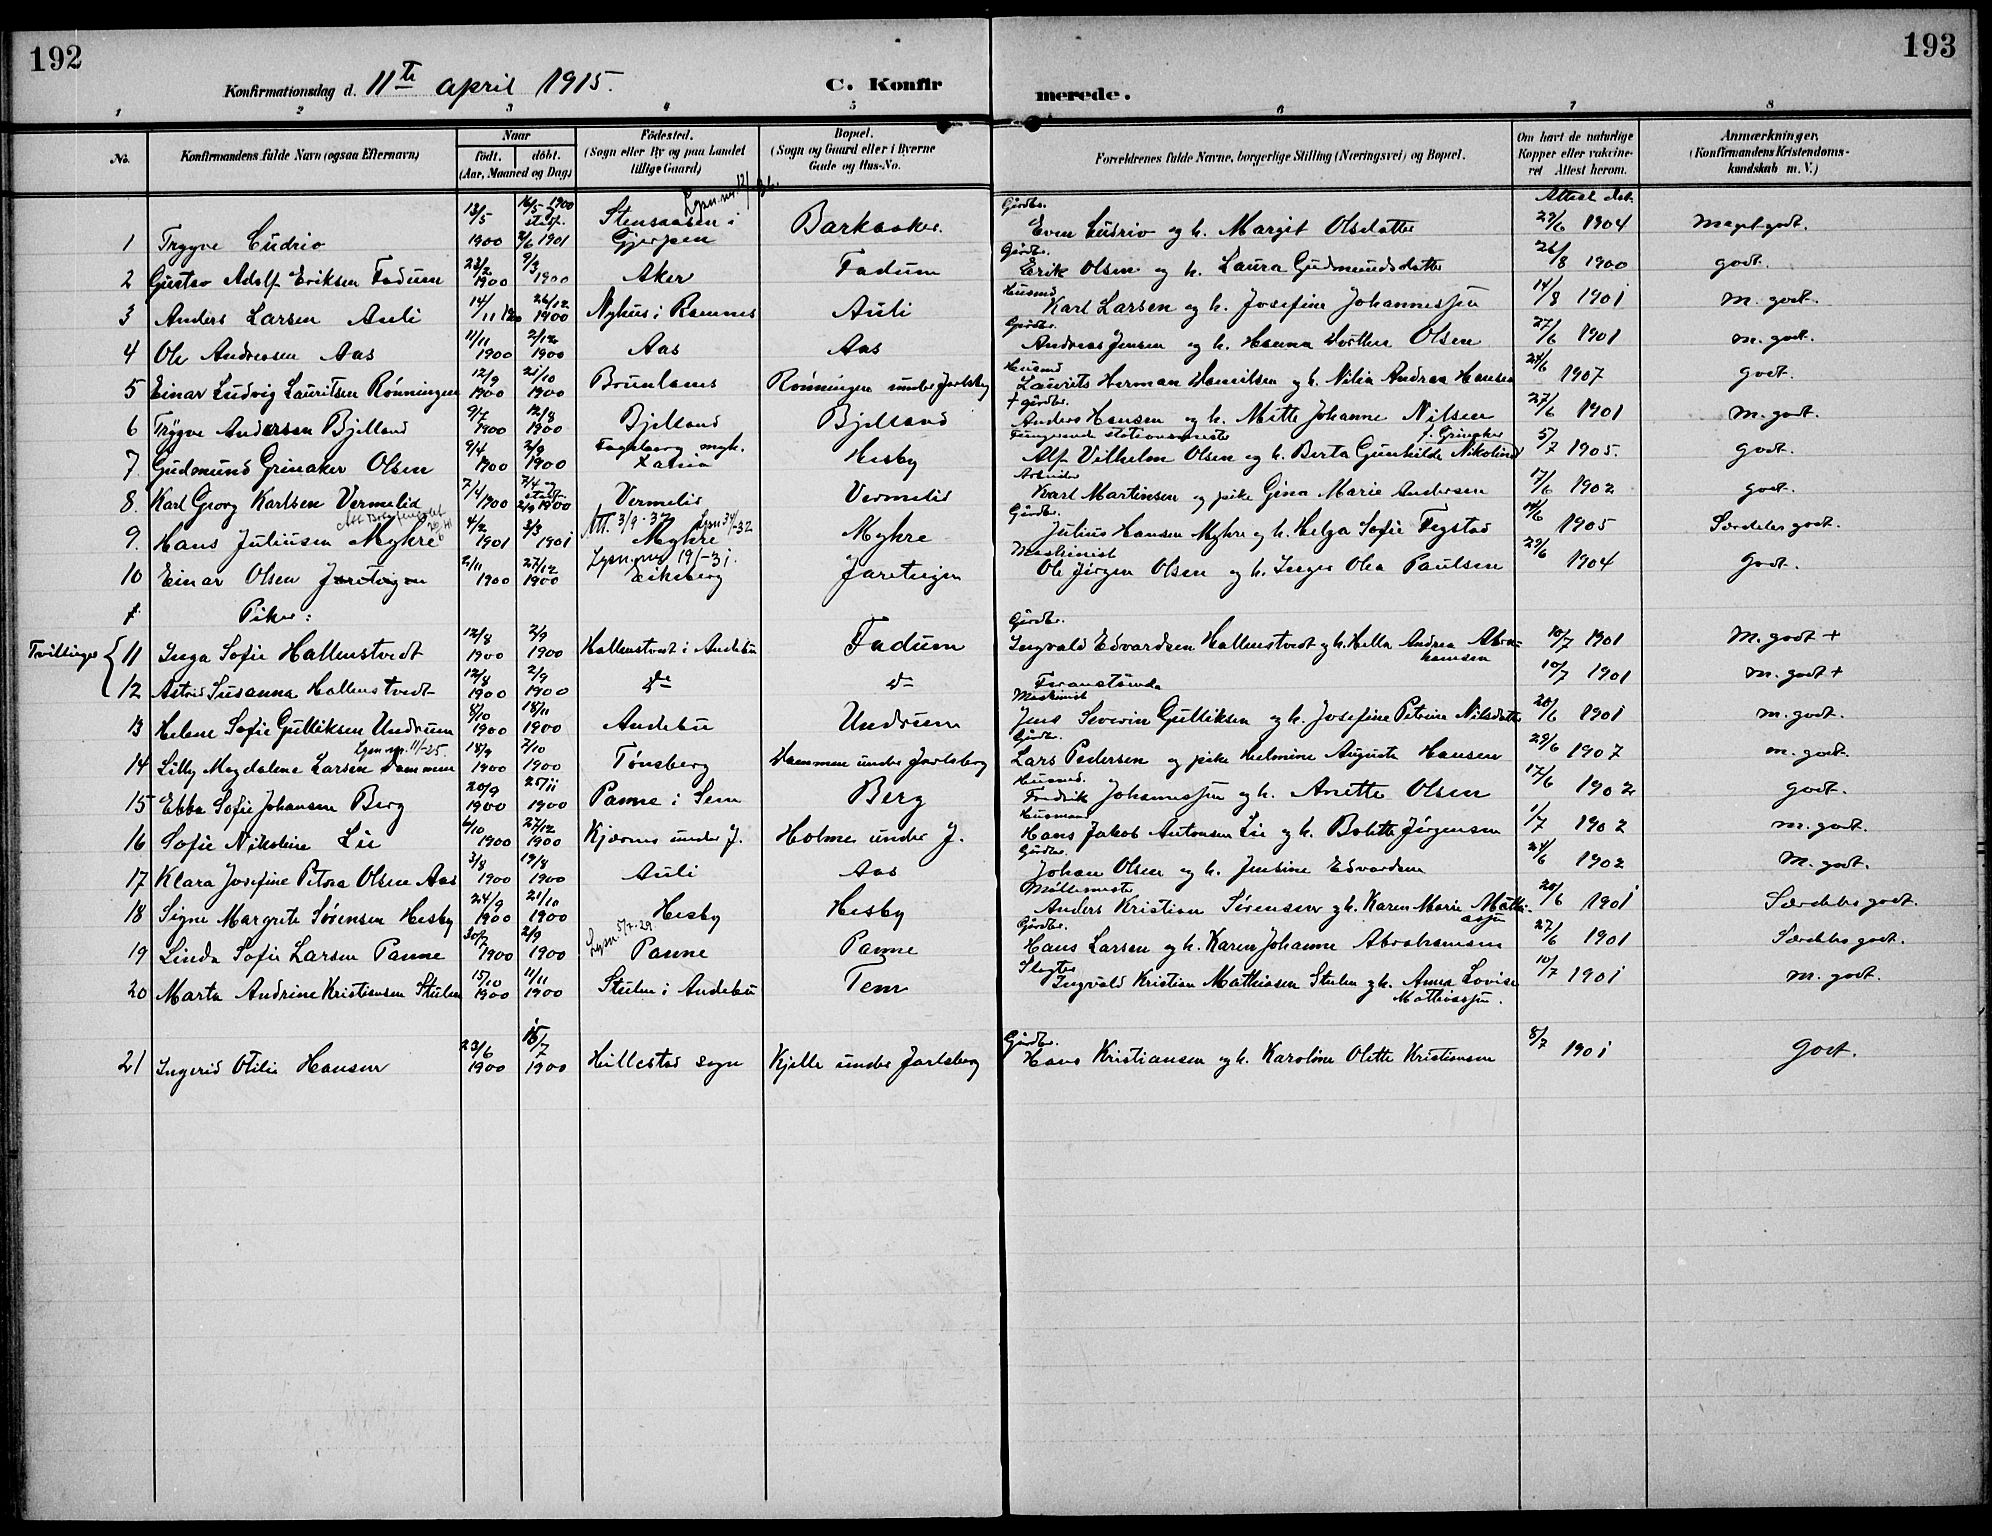 192
193
Konfirmationsdag d. 11te april 1915.
C. Konfir
merede.
1 2 3 4 5 6 7 8
No.
Konfirmandens fulde Navn (ogsaa Efternavn)
Naar
født. døbt.
(Aar, Maaned og Dag)
Fødested.
(Sogn eller By og paa Landet
tillige Gaard)
Bopæl.
(Sogn og Gaard eller i Byerne
Gade og Hus-No.
Forældrenes fulde Navne, borgerlige Stilling (Næringsvei) og Bopæl.
Om havt de naturlige
Kopper eller vakcine-
ret Attest herom.
Anmærkninger.
(Konfirmandens Kristendoms-
kundskab m. V.)
Attest dat.
1 Trygve 13/5 1900 16/5 1900 2/6 1901 Stensaasen i Gjerpen Barkaaker. Gårdbr. Even og h. Margit Olsdatter 29/6 1904 Meget godt.
2 Gustav Adolf Eriksen Fadum 23/2 1900 9/3 1900 Aker Fadum Gårdbr. Erik Olsen og h. Laura Gudmundsdatter 26/8 1900 godt.
3 Anders Larsen Auli 14/11 1900 26/12 1900 Nyhus i Ramnes Auli Husmd Karl Larsen og h. Josefine Johannessen 14/8 1901 m. godt.
4 Ole Andreasen Aas 11/11 1900 2/12 1900 Aas Aas Gårdbr. Andreas Jensen og h. Hanna Dorthea Olsen 27/6 1901 m. godt.
5 Einar Ludvig Lauritsen Rønningen 12/9 1900 21/10 1900 Brunlanes Rønningen under Jarlsberg Husmd Laurits Herman Danielsen og h. Nilia Andrea Hansen 24/6 1907 godt.
6 Trygve Andersen Bjelland 9/7 1900 12/8 1900 Bjelland Bjelland + gårdbr. Anders Hansen og h. Mette Johanne Nilsen 27/6 1901 m. godt.
7 Gudmund Grinaker Olsen 9/4 1900 2/9 1900 Hesby Fungerende stationsmester Alf Vilhelm Olsen og h. Berta Gunhilde Nikoline f. Grinaker 5/7 1905. godt.
8. Karl Georg Karlsen Vermelid 7/4 1900 7/4 og 2/9 1900 Vermelid Vermelid Arbeider Karl Martinsen og pike Gina Marie Andersen 17/6 1902 godt.
9. Hans Juliusen Myhre 4/2 1901 3/3 1901 Att. 3/9-37 Myhre Myhre Gårdbr. Julius Hansen Myhre og h. Helga Sofie Fegstad 14/6 1905 Særdeles godt.
10 Einar Olsen Jareteigen 2/11 1900 27/12 1900 Lysn. nr. 19/-31. Eikeberg Jareteigen Maskinist Ole Jørgen Olsen og h. Inger Olea Paulsen 29/6 1904 Godt.
Piker:
Tvillinger
11 Inga Sofie Hallenstvedt 12/8 1900 2/9 1900 Hallenstvedt i Andebu Fadum Gårdbr. Ingvald Edvardsen Hallenstvedt og h. Hella Andrea Abra-
hamsen 10/7 1901 M. godt +
12 Astrid Susanna Hallenstvedt 12/8 1900 2/9 1900 do do Foranstående 10/7 1901 m. godt +
13 Helene Sofie Gulliksen Undrum 8/10 1900 18/11 1900 Andebu Undrum Maskinist Jens Severin Gulliksen og h. Josefine Petrine Nilsdatter 20/6 1901 m. godt.
14 Lilly Magdalene Larsen Dammen Lysn. nr. 11/-25. 18/9 1900 7/10 1900 Tønsberg Dammen under Jarlsberg Gårdbr. Lars Pedersen og pike Helmine Augusta Hansen 29/6 1907 m. godt.
15 Ebba Sofie Johansen Berg 20/9 1900 25/11 1900 Panne i Sem Berg Husmd. Fredrik Johannessen og h. Anette Olsen 17/6 1902 godt.
16 Sofie Nikoline Lie 6/10 1900 27/12 1900 Kjærnes under J. Holmen under J. Husmann Hans Jakob Antonsen Lie og h. Bolette Jørgensen 1/7 1902 m. godt.
17 Klara Josefine Petora Olsen Aas 3/8 1900 19/8 1900 Auli Aas Gårdbr. Johan Olsen og h. Jensine Edvardsen 24/6 1902 M. godt.
18 Signe Margrete Sørensen Hesby 24/9 1900 21/10 1900 Hesby Hesby Møllemester Anders Kristian Sørensen og h. Karen Marie Mathi-
assen 20/6 1901 Særdeles godt.
19 Linda Sofie Larsen Panne 30/7 1900 2/9 1900 Lysn. 5/7-29. Panne Panne Gårdbr. Hans Larsen og h. Karen Johanne Abrahamsen 27/6 1901 Særdeles godt.
20 Marta Andrine Kristiansen Stulen 15/10 1900 11/11 1900 Stulen i Andebu Tem Slagter Ingvald Kristian Mathiasen Stulen og h. Anna Lovise
Mathiassen. 10/7 1901 m. godt.
21 Ingerid Otilie Hansen 23/6 1900 15/7 1900 Hillestad sogn Kjelle under Jarlsberg Gårdbr. Hans Kristiansen og h. Karoline Olette Kristiansen 8/7 1901 Godt.